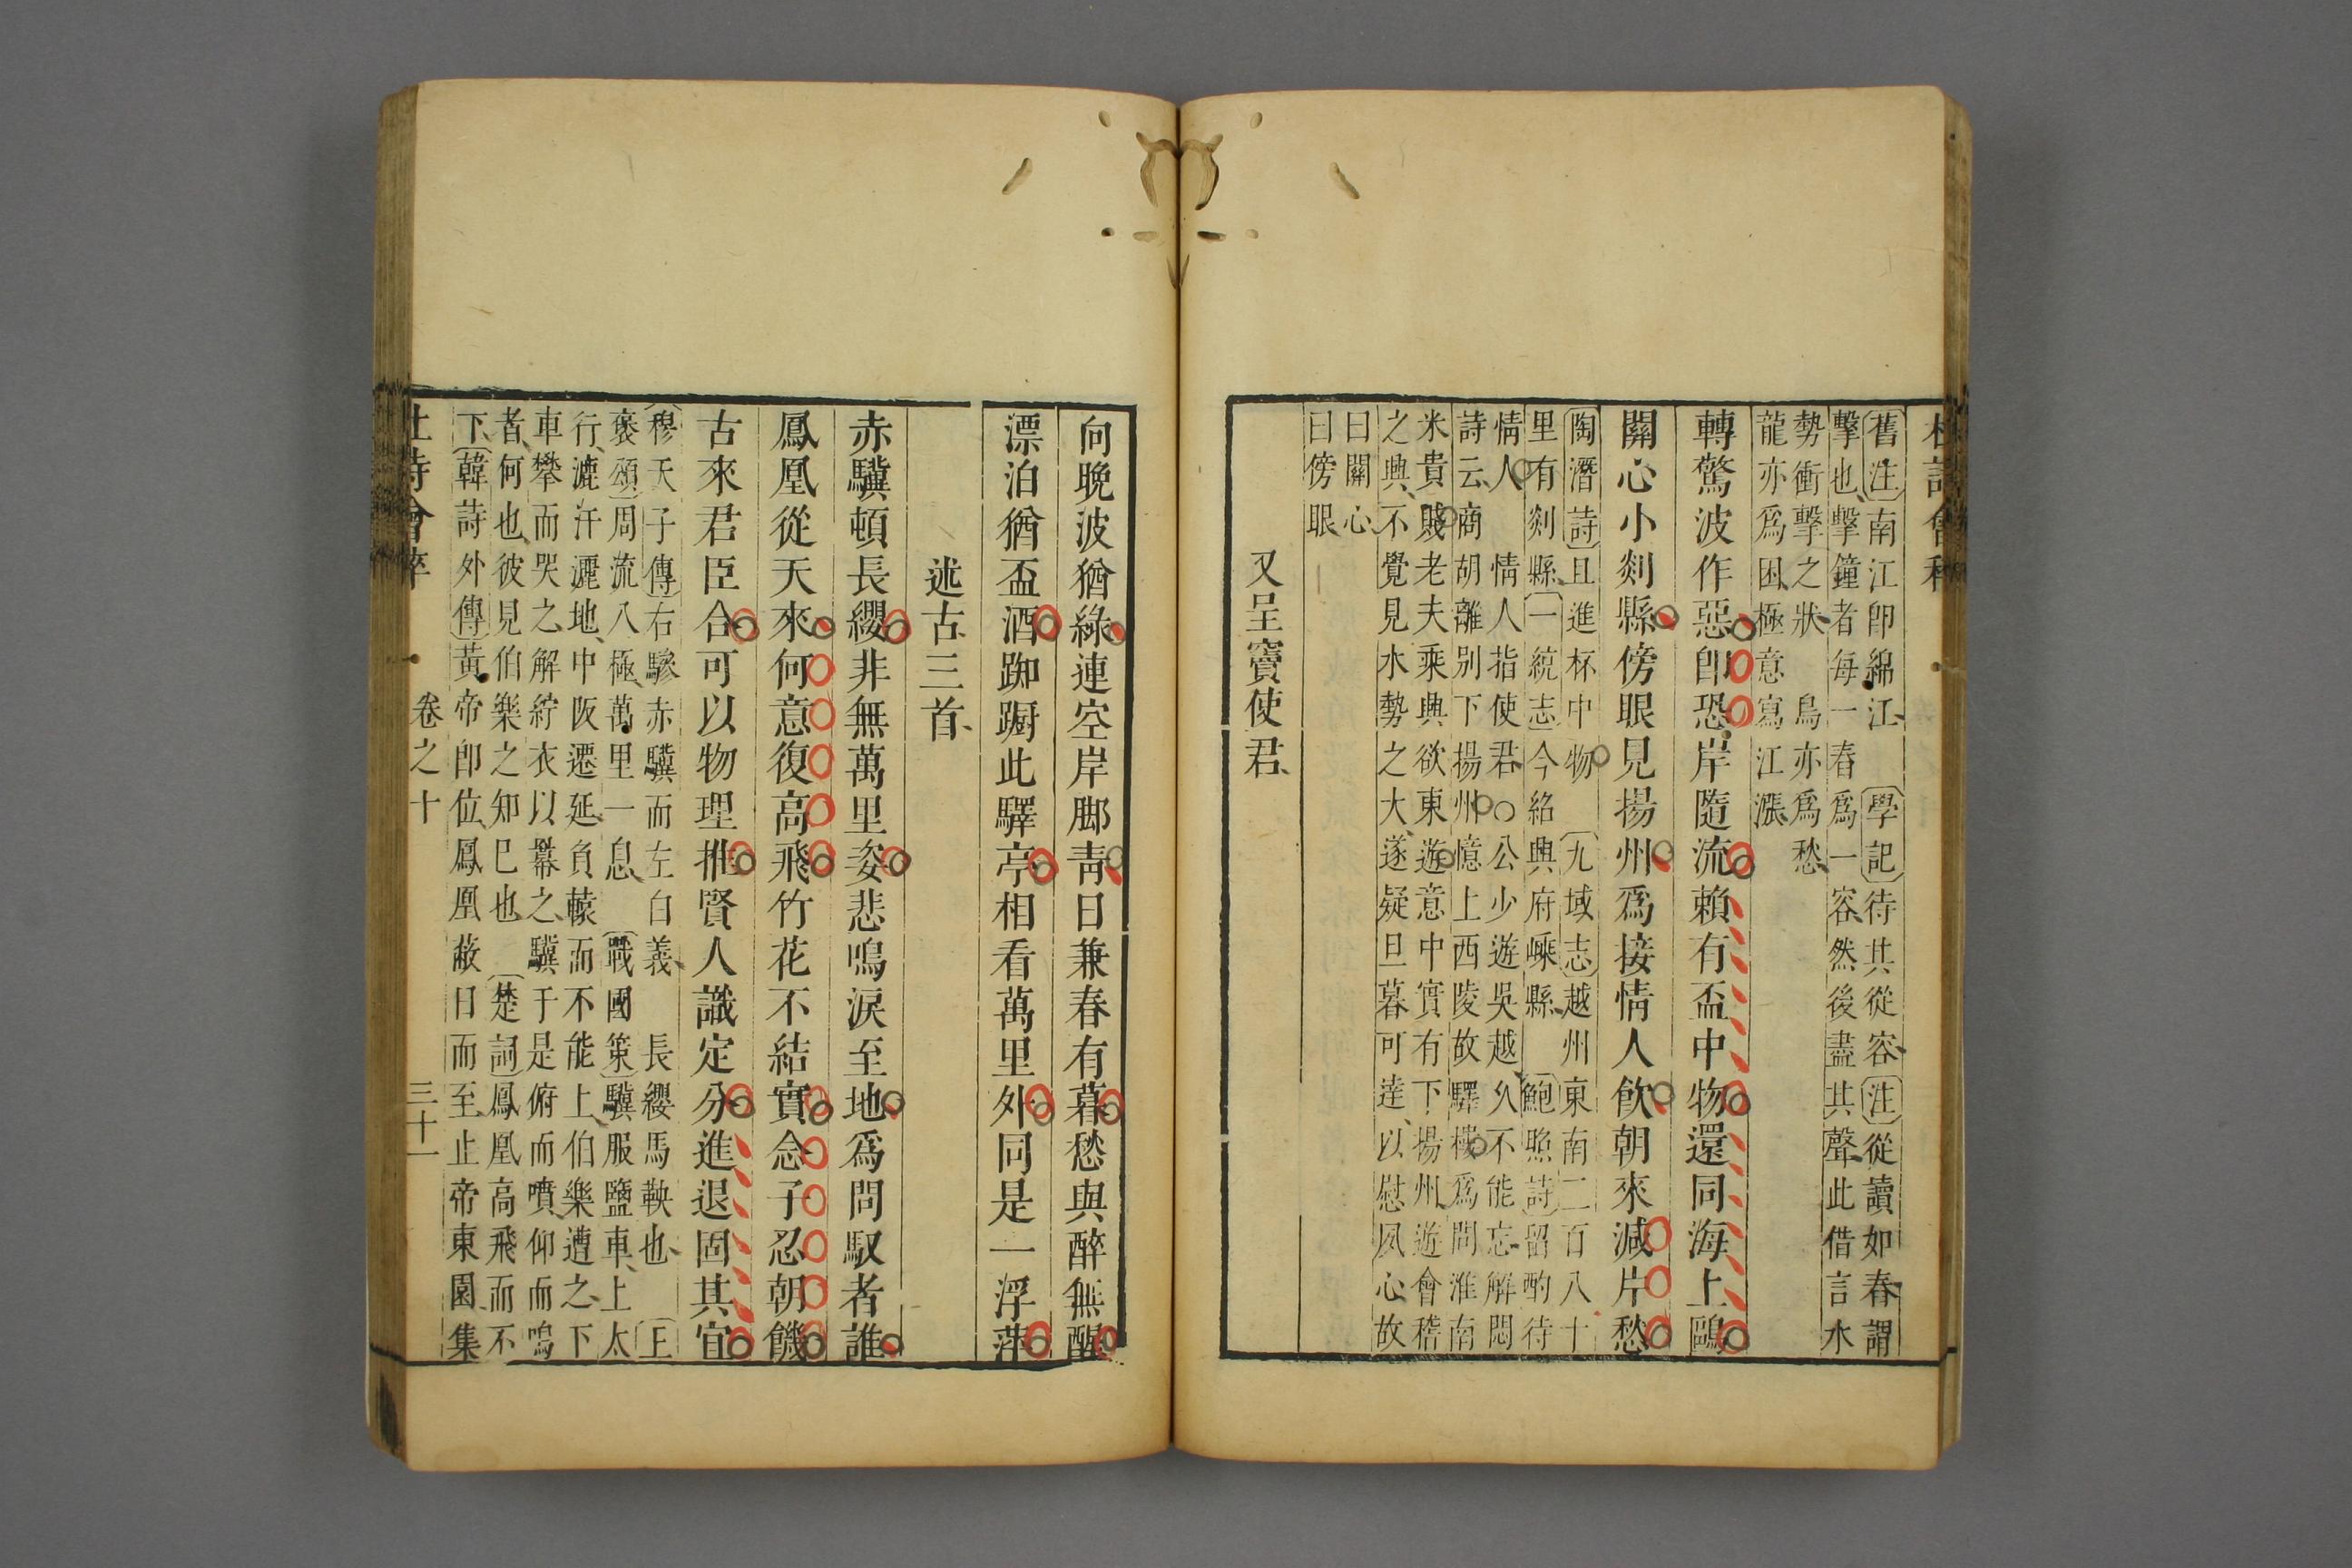 杜詩會稡
舊注南江卽綿江　學記待其從容注從讀如春謂
擊也擊鐘者每一春爲一容然後盡其聲此借言水
勢衝擊之狀　鳥亦爲愁
龍亦爲困極意寫江漲
轉驚波作惡卽恐岸隨流賴有盃中物還同海上鷗
關心小剡縣傍眼見揚州爲接情人飮朝來減片愁
陶潛詩且進杯中物　九域志越州東南二百八十
里有剡縣一統志今紹興府嵊縣　鮑照詩留酌待
情人　情人指使君○公少遊吳越久不能忘解悶
詩云商胡離別下揚州憶上西陵故驛樓爲問淮南
米貴賤老夫乘興欲東遊意中實有下揚州遊會稽
之興不覺見水勢之大遂疑旦暮可達以慰夙心故
曰關心
曰傍眼
又呈竇使君
向晚波猶綠連空岸脚青日兼春有暮愁與醉無醒
漂泊猶盃酒踟蹰此驛亭相看萬里外同是一浮萍
述古三首
赤驥頓長纓非無萬里姿悲鳴淚至地爲問馭者誰
鳳凰從天來何意復高飛竹花不結實念子忍朝饑
古來君臣合可以物理推賢人識定分進退固其宜
穆天子傳右驂赤驥而左白義　長纓馬鞅也　王
褒頌周流八極萬里一息　戰國策驥服鹽車上太
行漉汗灑地中阪遷延負轅而不能上伯樂遭之下
車攀而哭之解紵衣以冪之驥于是俯而噴仰而鳴
者何也彼見伯樂之知巳也　楚詞鳳凰高飛而不
下韓詩外傳黃帝卽位鳳凰蔽日而至止帝東園集
杜詩會稡　卷之十　三十一